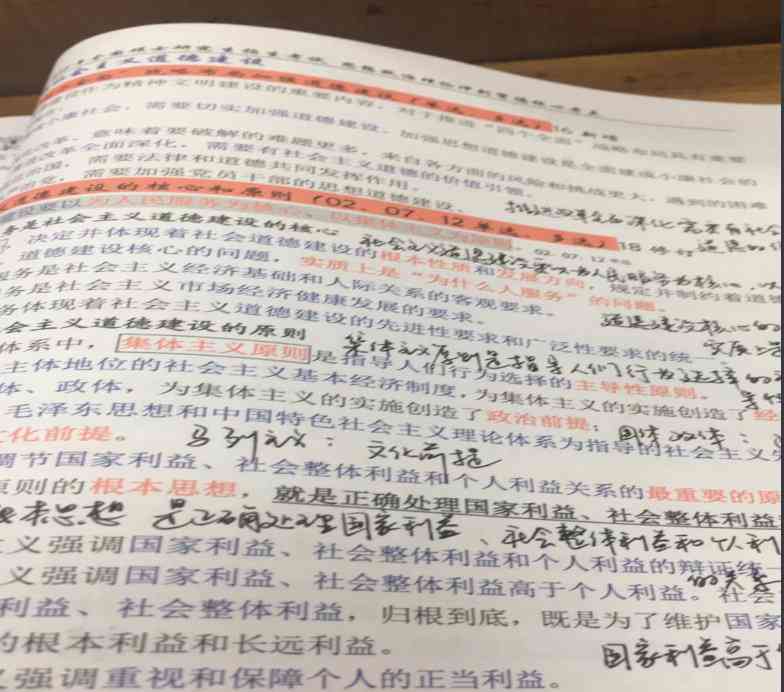 社会主义道德建设
战略布局加强道德建设（单选、多选）16 新增
建设作为精神文明建设的重要内容，对于推进“四个全面”战略布局具有重要
小康社会，需要切实加强道德建设。加强思想道德建设是全面建设小康社会的
改革，意味着要破解的难题更多，来自各方面的风险和挑战更大，遇到的困难
改革全面深化，需要有社会主义道德的价值引领。
治国，需要法律和道德共同发挥作用。
需要加强党员干部的思想道德建设。
推进改革全面深化需要有社会
道德建设的核心和原则（02、07、12 单选、多选）18 修订
建设要以为人民服务为核心，以集体主义为原则。02、07、12
务是社会主义道德建设的核心
决定并体现着社会道德建设的根本性质和发展方向，规定并制约着道德
道德建设核心的问题，实质上是“为什么人服务”的问题。
服务是社会主义经济基础和人际关系的客观要求。
务是社会主义市场经济健康发展的要求。
务体现着社会主义道德建设的先进性要求和广泛性要求的统一
道德建设核心的
实质上是
会主义道德建设的原则
集体主义原则是指导人们行为选择的
体系中，集体主义原则是指导人们行为选择的主导性原则。
主体地位的社会主义基本经济制度，为集体主义的实施创造了经
体、政体，为集体主义的实施创造了政治前提；
国体政体：
毛泽东思想和中国特色社会主义理论体系为指导的社会主义
化前提。
马列主义：文化前提
调节国家利益、社会整体利益和个人利益关系的最重要的原
原则的根本思想，就是正确处理国家利益、社会整体利益
根本思想 是正确处理国家利益、社会整体利益和个人利
的关系
义强调国家利益、社会整体利益和个人利益的辩证统
义强调国家利益、社会整体利益高于个人利益。社会
利益、社会整体利益，归根到底，既是为了维护国家
的根本利益和长远利益。
国家利益高于
义强调重视和保障个人的正当利益。